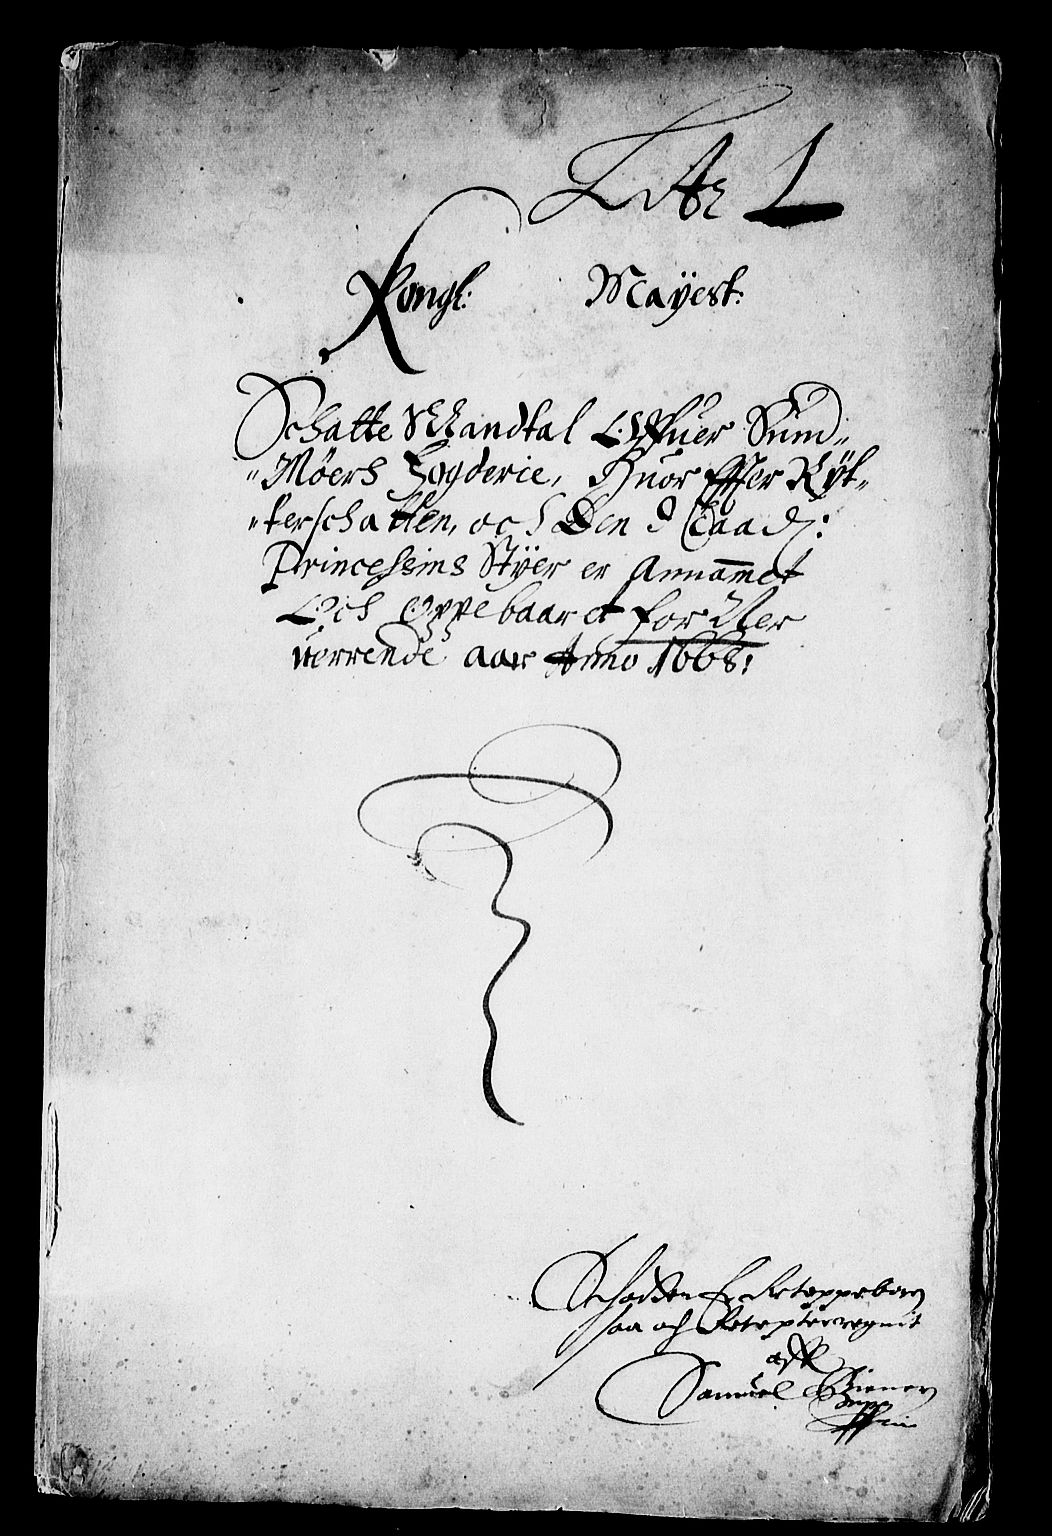 Litr L
Kongl: Mayest:
Schatte Mandtal Offuer Sund„
„Möers Fogderie, Huor Effter Ryt„
„terschatten, och Den
Princessins Styer er Annammet
Och Oppebaaret for Neer
uerrende aar Anno 1668:
Schatten Er
saa och
aff
Samuel